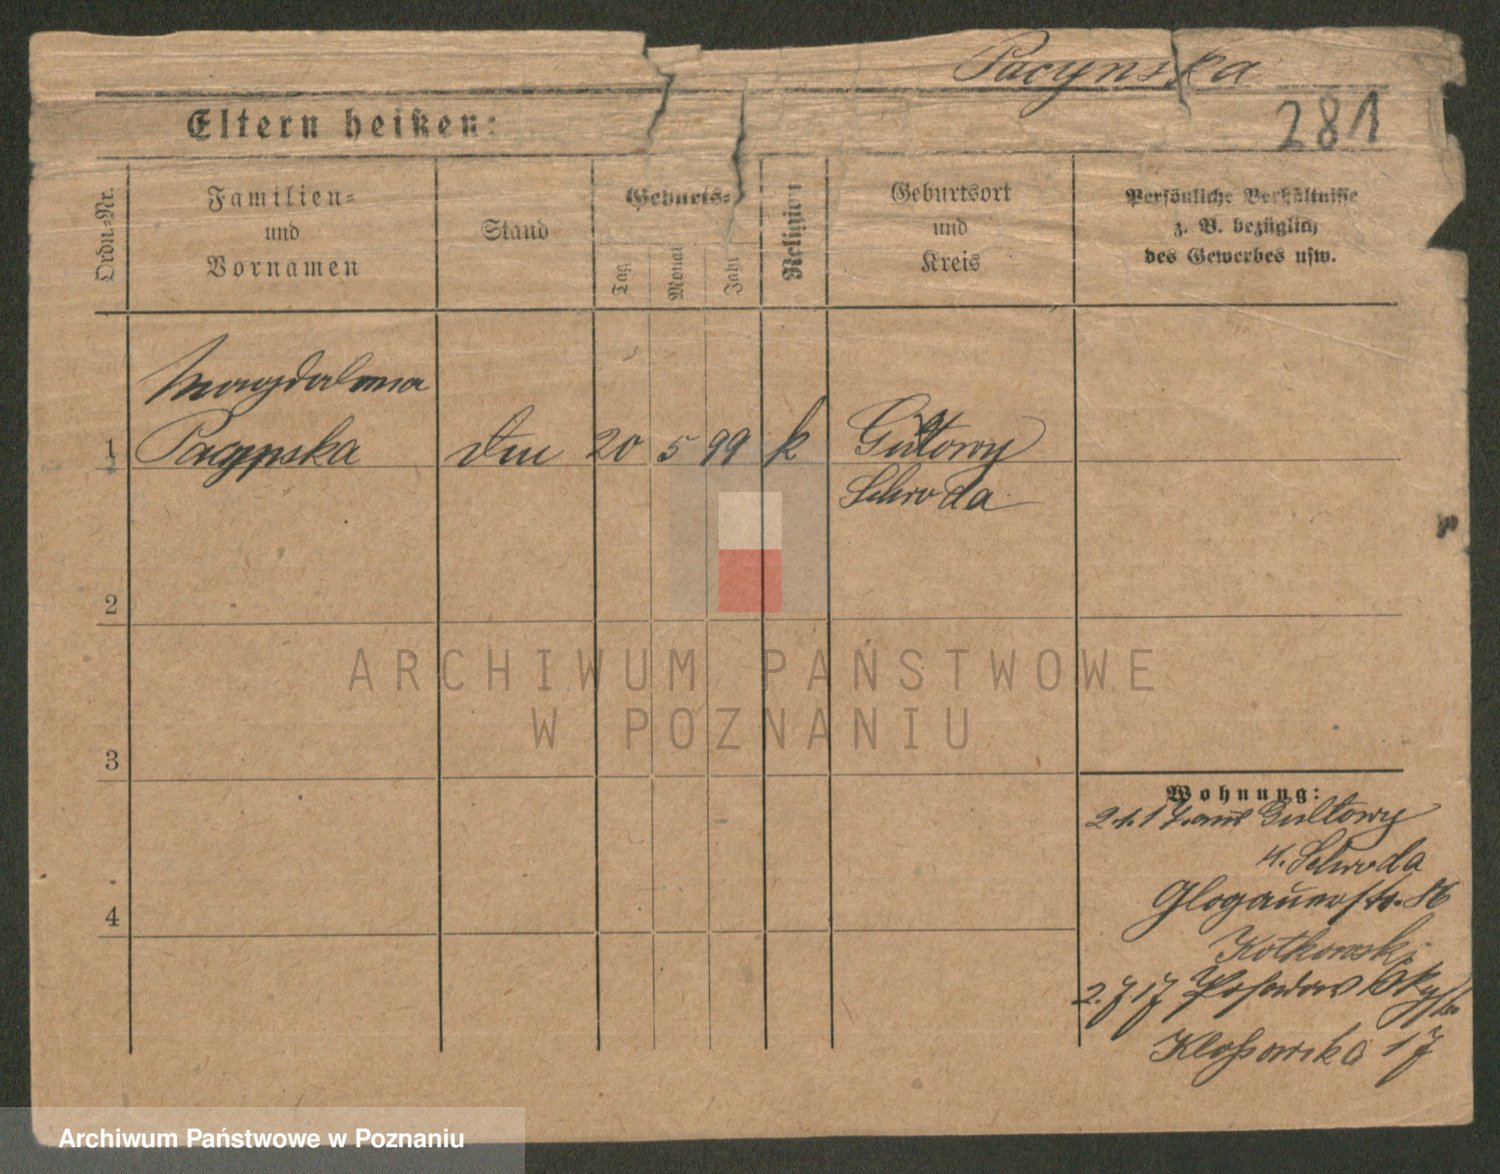 Pacynska
281
Eltern heißen:
Ordn.-Nr.
Familien-
und
Vornamen
Stand
Geburts-
Tag
Monat
Jahr
Religion
Geburtsort
und
Kreis
Persönliche Verhältnisse
z. B. bezüglich
des Gewerbes usw.
Magdalena
1 Pacynska 20 5 99 k Gultowy
Schroda
2
3
4
Wohnung:
2.1.17. aus Gultowy
Schroda
Glogauerstr.
Kotkowski
2.7.17
17
ARCHIWUM PAŃSTWOWE
W POZNANIU
Archiwum Państwowe w Poznaniu